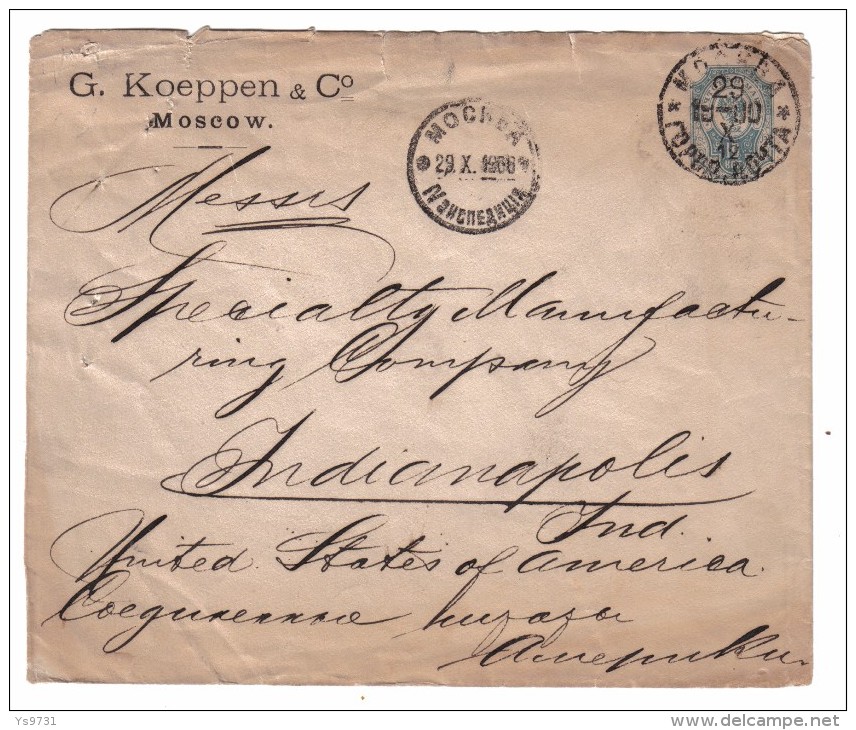 G. Koeppen & Co
Moscow.
МОСКВА
29. X. 1906
IV ЭКСПЕДИЦІЯ
МОСКВА
29
X
12
ГОРОД. ПОЧТА
Messrs
Specialty Manufactu-
ring Company
Indianapolis
Ind.
United States of America.
Соединенные Штаты
Америки.
Ys9731
delcampe.net